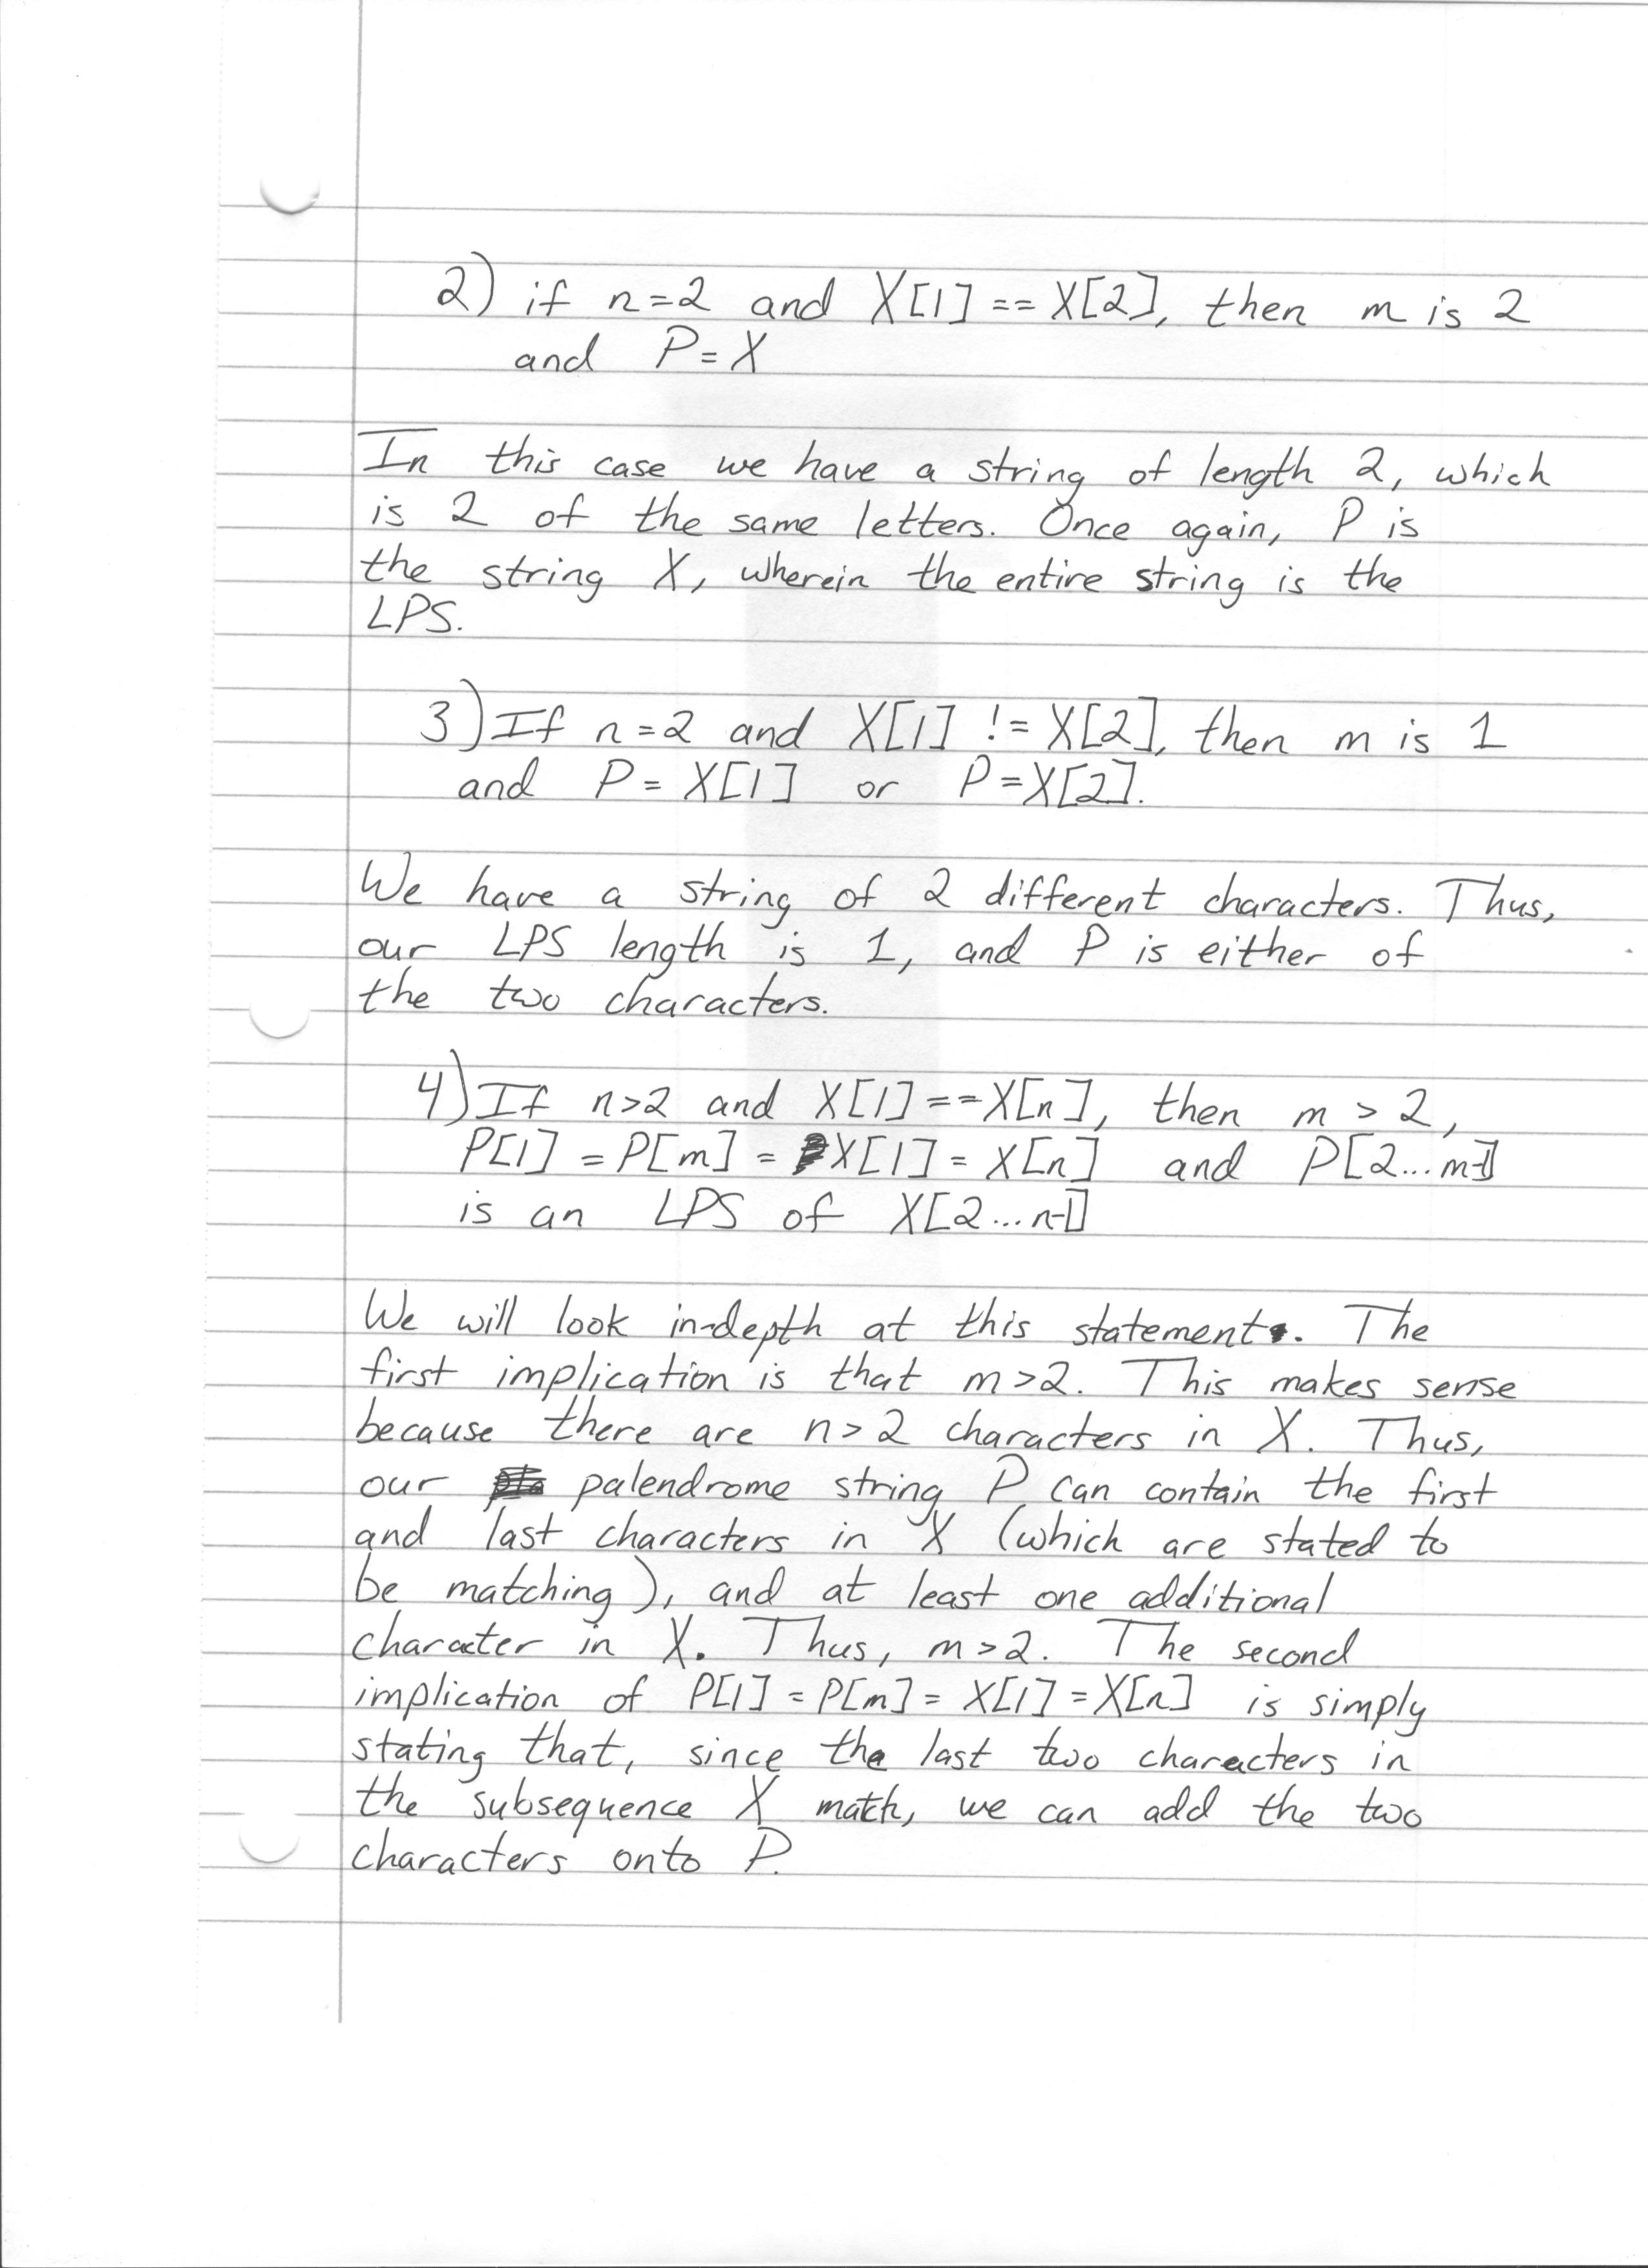 2) if n=2 and X[1] == X[2], then m is 2
and P=X
In this case we have a string of length 2, which
is 2 of the same letters. Once again, P is
the string X, wherein the entire string is the
LPS.
3) If n=2 and X[1] != X[2], then m is 1
and P = X[1] or P=X[2].
We have a string of 2 different characters. Thus,
our LPS length is 1, and P is either of
the two characters.
4) If n>2 and X[1]==X[n], then m > 2,
P[1] = P[m] = X[1] = X[n] and P[2...m-1]
is an LPS of X[2...n-1]
We will look in-depth at this statement. The
first implication is that m>2. This makes sense
because there are n>2 characters in X. Thus,
our palendrome string P can contain the first
and last characters in X (which are stated to
be matching), and at least one additional
character in X. Thus, m>2. The second
implication of P[1] = P[m] = X[1] = X[n] is simply
stating that, since the last two characters in
the subsequence X match, we can add the two
characters onto P.